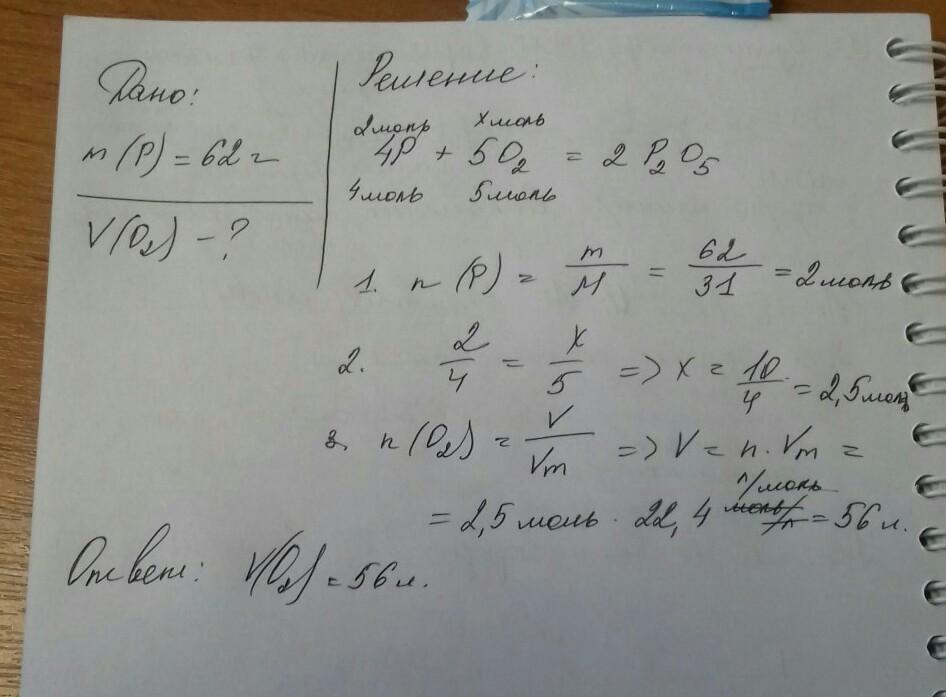 Дано:
m (P) = 62 г
V(O₂) - ?
Решение:
2моль х моль
4P + 5O₂ = 2 P₂O₅
4моль 5моль
1. n (P) = m/M = 62/31 = 2 моль
2. 2/4 = x/5 => x = 10/4 = 2,5 моль
3. n (O₂) = V/Vm => V = n · Vm =
= 2,5 моль · 22,4 л/моль = 56 л.
Ответ: V(O₂) = 56 л.